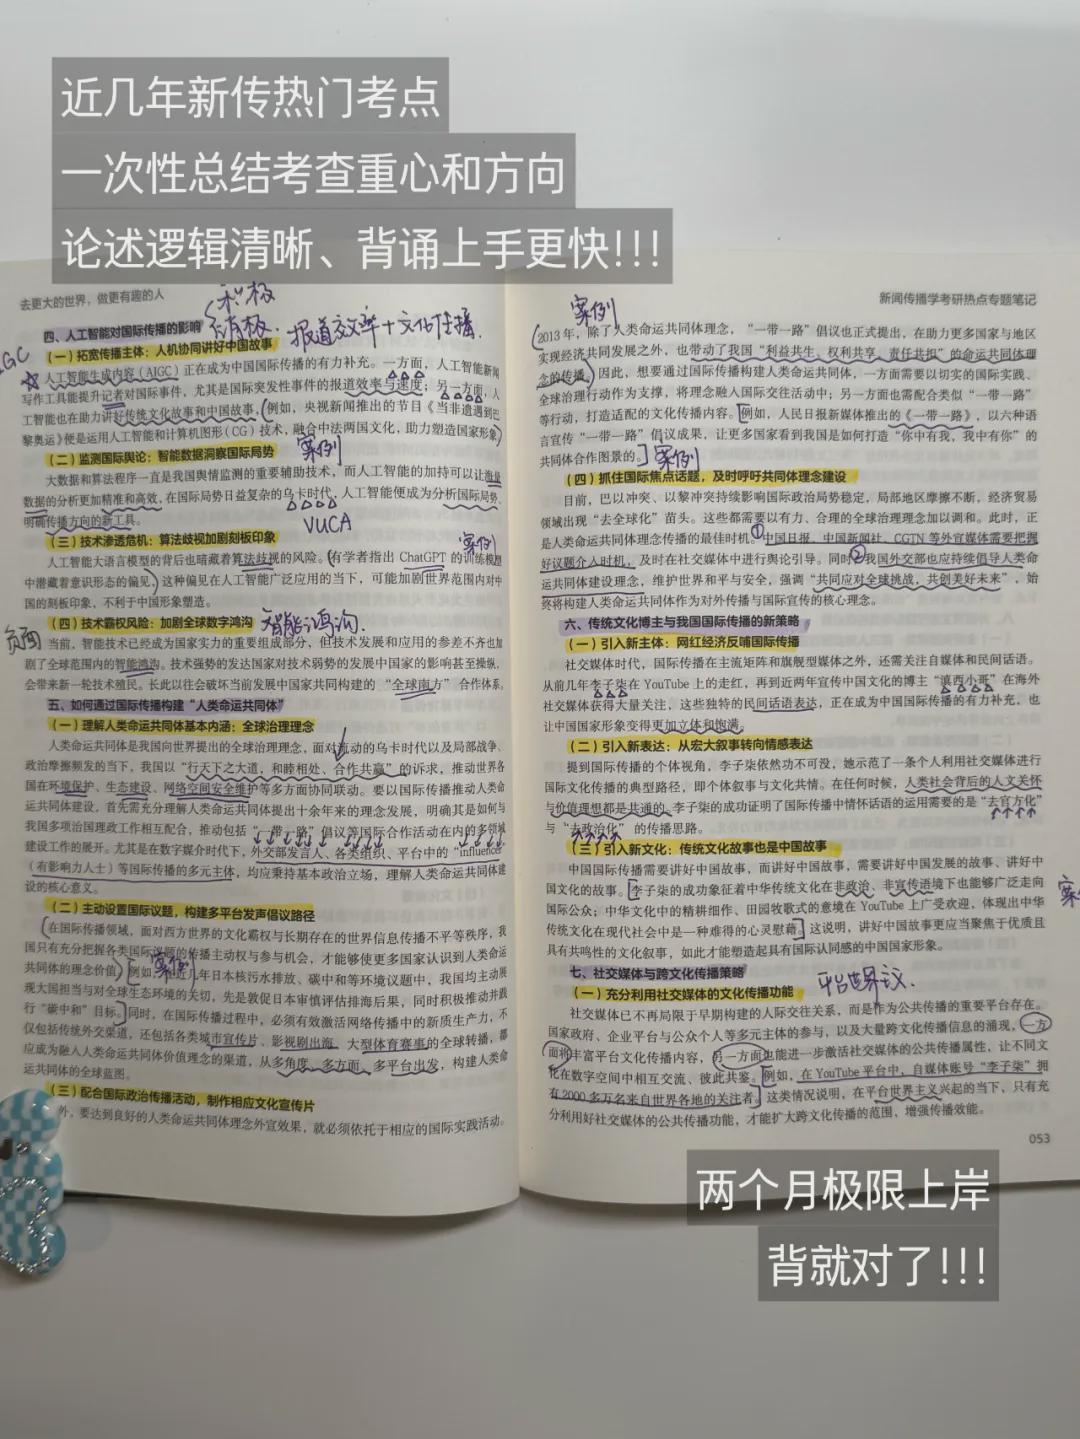 近几年新传热门考点
一次性总结考查重心和方向
论述逻辑清晰、背诵上手更快!!!
去更大的世界，做更有趣的人
积极
消极.
报道效率+文化传播.
四、人工智能对国际传播的影响
（一）拓宽传播主体：人机协同讲好中国故事
人工智能生成内容（AIGC）正在成为中国国际传播的有力补充。一方面，人工智能新闻
写作工具能提升记者对国际事件，尤其是国际突发性事件的报道效率与速度；另一方面，人
工智能也在助力讲好传统文化故事和中国故事，（例如，央视新闻推出的节目《当非遗遇到巴
黎奥运》便是运用人工智能和计算机图形（CG）技术，融合中法两国文化，助力塑造国家形象）
（二）监测国际舆论：智能数据洞察国际局势
案例
大数据和算法程序一直是我国舆情监测的重要辅助技术，而人工智能的加持可以让海量
数据的分析更加精准和高效，在国际局势日益复杂的乌卡时代，人工智能便成为分析国际局势、
明确传播方向的新工具。
VUCA
（三）技术渗透危机：算法歧视加剧刻板印象
案例
人工智能大语言模型的背后也暗藏着算法歧视的风险。（有学者指出 ChatGPT 的训练模型
中潜藏着意识形态的偏见）这种偏见在人工智能广泛应用的当下，可能加剧世界范围内对中
国的刻板印象、不利于中国形象塑造。
（四）技术霸权风险：加剧全球数字鸿沟
智能鸿沟.
负面
当前，智能技术已经成为国家实力的重要组成部分，但技术发展和应用的参差不齐也加
剧了全球范围内的智能鸿沟。技术强势的发达国家对技术弱势的发展中国家的影响甚至操纵，
会带来新一轮技术殖民。长此以往会破坏当前发展中国家共同构建的“全球南方”合作体系。
五、如何通过国际传播构建“人类命运共同体”
（一）理解人类命运共同体基本内涵：全球治理理念
人类命运共同体是我国向世界提出的全球治理理念，面对流动的乌卡时代以及局部战争、
政治摩擦频发的当下，我国以“行天下之大道，和睦相处、合作共赢”的诉求，推动世界各
国在环境保护、生态建设、网络空间安全维护等多方面协同联动。要以国际传播推动人类命
运共同体建设，首先需充分理解人类命运共同体提出十余年来的理念发展，明确其是如何与
我国多项治国理政工作相互配合，推动包括“一带一路”倡议等国际合作活动在内的多领域
建设工作的展开。尤其是在数字媒介时代下，外交部发言人、各类组织、平台中的“influencer”
（有影响力人士）等国际传播的多元主体，均应秉持基本政治立场，理解人类命运共同体建
设的核心意义。
（二）主动设置国际议题，构建多平台发声倡议路径
在国际传播领域，面对西方世界的文化霸权与长期存在的世界信息传播不平等秩序，我
国只有充分把握各类国际议题的传播主动权与参与机会，才能够使更多国家认识到人类命运
共同体的理念价值）[例如，近几年日本核污水排放、碳中和等环境议题中，我国均主动展
案例
现大国担当与对全球生态环境的关切，先是敦促日本审慎评估排海后果，同时积极推动并践
行“碳中和”目标。]同时，在国际传播过程中，必须有效激活网络传播中的新质生产力，不
仅包括传统外交渠道，还包括各类城市宣传片、影视剧出海、大型体育赛事的全球转播，都
应成为融入人类命运共同体价值理念的渠道，从多角度、多方面、多平台出发，构建人类命
运共同体的全球蓝图。
（三）配合国际政治传播活动，制作相应文化宣传片
外，要达到良好的人类命运共同体理念外宣效果，就必须依托于相应的国际实践活动。
新闻传播学考研热点专题笔记
案例
2013年，除了人类命运共同体理念，“一带一路”倡议也正式提出，在助力更多国家与地区
实现经济共同发展之外，也带动了我国“利益共生、权利共享、责任共担”的命运共同体理
念的传播）因此，想要通过国际传播构建人类命运共同体，一方面需要以切实的国际实践、
全球治理行动作为支撑，将理念融入国际交往活动中；另一方面也需配合类似“一带一路”
等行动，打造适配的文化传播内容。[例如，人民日报新媒体推出的《一带一路》，以六种语
言宣传“一带一路”倡议成果，让更多国家看到我国是如何打造“你中有我，我中有你”的
共同体合作图景的。]案例
（四）抓住国际焦点话题，及时呼吁共同体理念建设
目前，巴以冲突、以黎冲突持续影响国际政治局势稳定，局部地区摩擦不断，经济贸易
领域出现“去全球化”苗头。这些都需要以有力、合理的全球治理理念加以调和。此时，正
是人类命运共同体理念传播的最佳时机。①中国日报、中国新闻社、CGTN 等外宣媒体需要把握
好议题介入时机，及时在社交媒体中进行舆论引导。同时②我国外交部也应持续倡导人类命
运共同体建设理念，维护世界和平与安全，强调“共同应对全球挑战，共创美好未来”，始
终将构建人类命运共同体作为对外传播与国际宣传的核心理念。
六、传统文化博主与我国国际传播的新策略
（一）引入新主体：网红经济反哺国际传播
社交媒体时代，国际传播在主流矩阵和旗舰型媒体之外，还需关注自媒体和民间话语。
从前几年李子柒在 YouTube 上的走红，再到近两年宣传中国文化的博主“滇西小哥”在海外
社交媒体获得大量关注，这些独特的民间话语表达，正在成为中国国际传播的有力补充，也
让中国国家形象变得更加立体和饱满。
（二）引入新表达：从宏大叙事转向情感表达
提到国际传播的个体视角，李子柒依然功不可没，她示范了一条个人利用社交媒体进行
国际文化传播的典型路径，即个体叙事与文化共情。在任何时候，人类社会背后的人文关怀
与价值理想都是共通的，李子柒的成功证明了国际传播中情怀话语的运用需要的是“去官方化”
与“去政治化”的传播思路。
（三）引入新文化：传统文化故事也是中国故事
中国国际传播需要讲好中国故事，而讲好中国故事，需要讲好中国发展的故事、讲好中
国文化的故事。[李子柒的成功象征着中华传统文化在非政治、非宣传语境下也能够广泛走向
国际公众；中华文化中的精耕细作、田园牧歌式的意境在 YouTube 上广受欢迎，体现出中华
传统文化在现代社会中是一种难得的心灵慰藉。]这说明，讲好中国故事更应当聚焦于优质且
具有共鸣性的文化叙事，如此才能塑造起具有国际认同感的中国国家形象。
七、社交媒体与跨文化传播策略
（一）充分利用社交媒体的文化传播功能
平台世界主义.
社交媒体已不再局限于早期构建的人际交往关系，而是作为公共传播的重要平台存在。
国家政府、企业平台与公众个人等多元主体的参与，以及大量跨文化传播信息的涌现，一方
面将丰富平台文化传播内容，另一方面也能进一步激活社交媒体的公共传播属性，让不同文
化在数字空间中相互交流、彼此共鉴。[例如，在 YouTube 平台中，自媒体账号“李子柒”拥
有 2000 多万名来自世界各地的关注者。]这类情况说明，在平台世界主义兴起的当下，只有充
分利用好社交媒体的公共传播功能，才能扩大跨文化传播的范围，增强传播效能。
053
两个月极限上岸
背就对了!!!